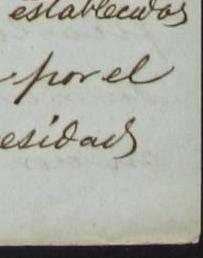 establecidos
por el
esidad